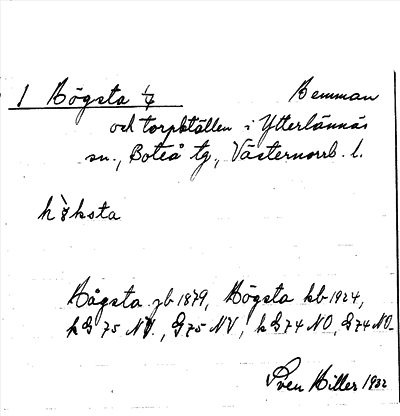 1 Högsta 4 Hemman
och torpställen i Ytterlännäs
sn., Boteå tg., Västernorrl. l.
hö̀ksta
Högsta jb 1879, Högsta kb 1924,
k G75 NV, G75 NV, k G74 NO, G74 NO.
Sven Hiller 1932